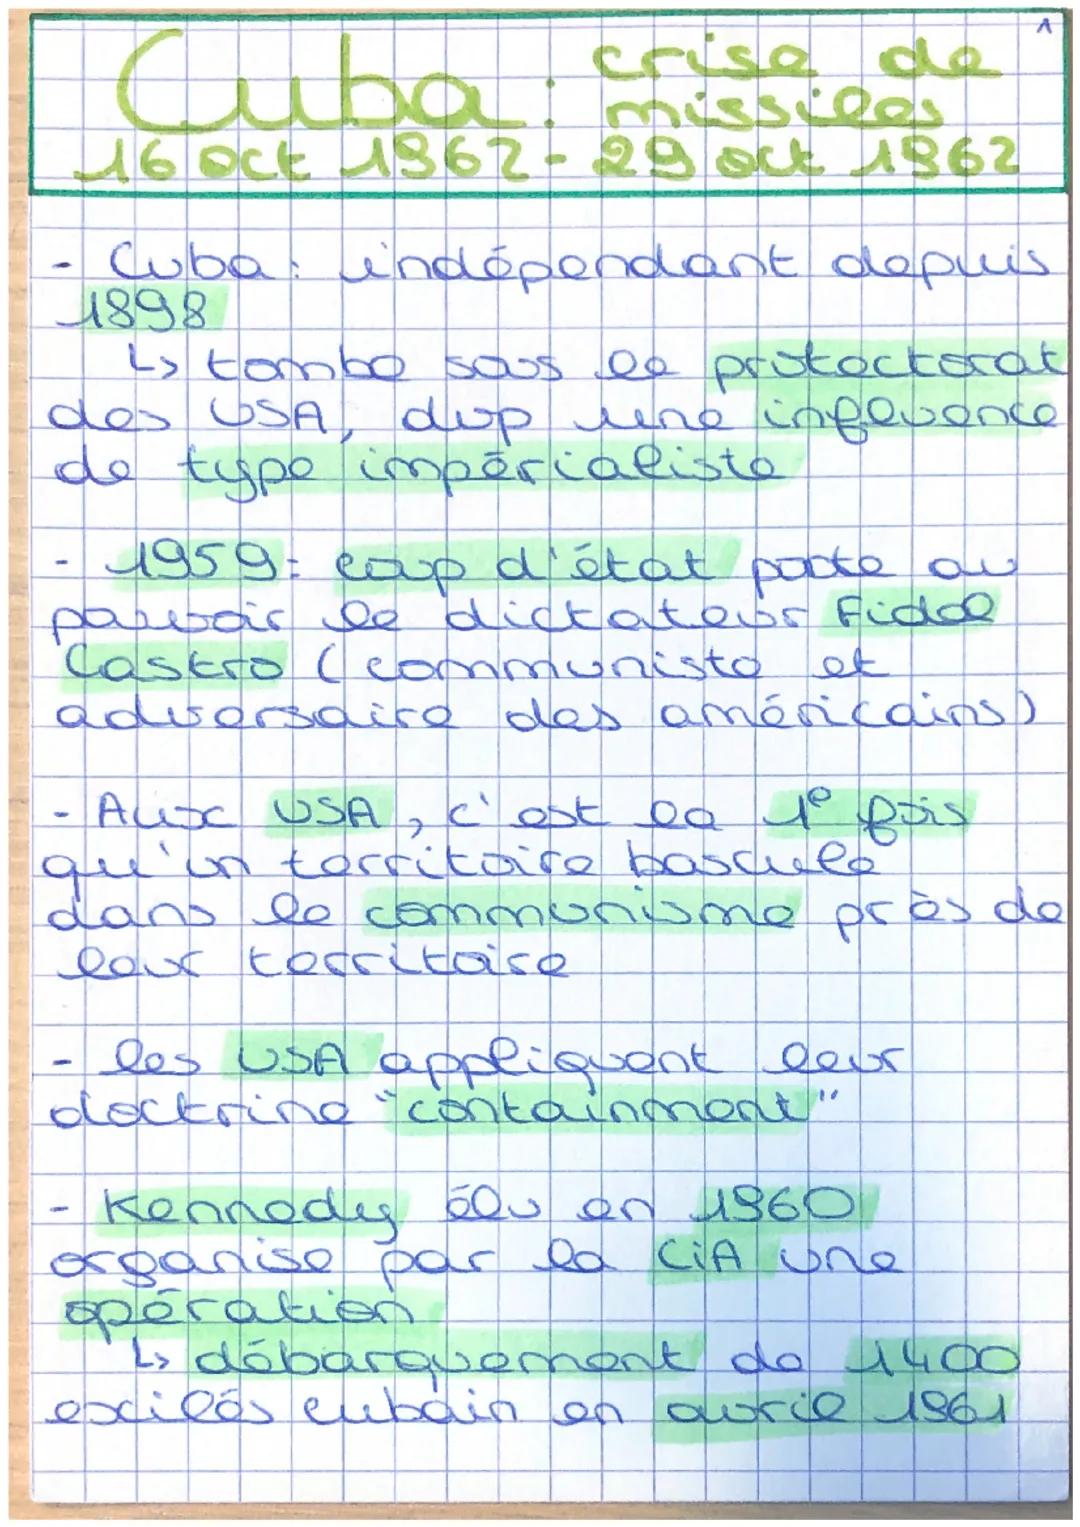 1
Cuba : crise de
missiles
16 oct 1962 - 29 oct 1962
- Cuba : indépendant depuis
1898
↳ tombe sous le protectorat
des USA, dvp une influence
de type impérialiste
- 1959 : coup d'état porte au
pouvoir le dictateur Fidel
Castro (communiste et
adversaire des américains)
- Aux USA, c'est la 1e fois
qu'un territoire bascule
dans le communisme près de
leur territoire
- les USA appliquent leur
doctrine "containment"
- Kennedy élu en 1960
organise par la CiA une
opération
↳ débarquement de 1400
exilés cubain en avril 1961